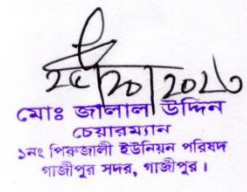 ২৫/১০/২০২৩
মোঃ জালাল উদ্দিন
চেয়ারম্যান
১নং পিরুজালী ইউনিয়ন পরিষদ
গাজীপুর সদর, গাজীপুর।